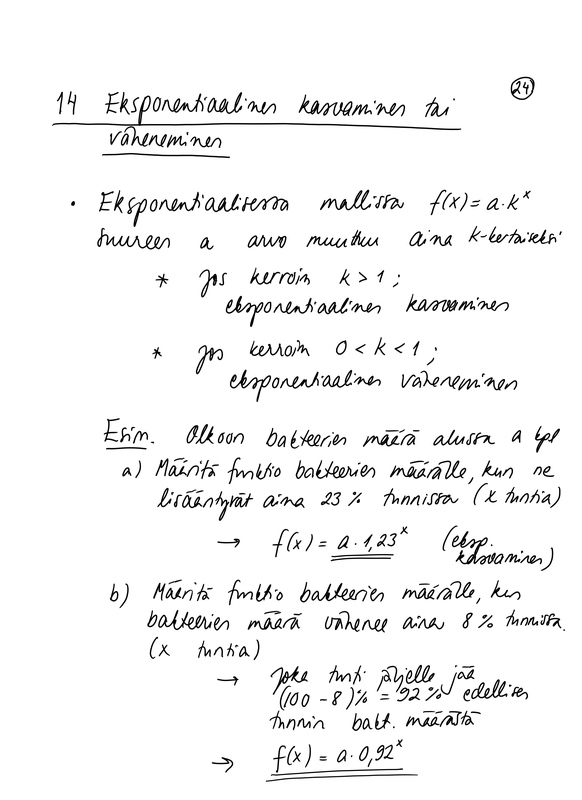 24
14 Eksponentiaalinen kasvaminen tai
väheneminen
• Eksponentiaalisessa mallissa f(x) = a·kˣ
suureen a arvo muuttuu aina k-kertaiseksi
* Jos kerroin k > 1 ;
eksponentiaalinen kasvaminen
* Jos kerroin 0 < k < 1 ;
eksponentiaalinen väheneminen
Esim. Olkoon bakteerien määrä alussa a kpl
a) Määritä funktio bakteerien määrälle, kun ne
lisääntyvät aina 23 % tunnissa (x tuntia)
→ f(x) = a·1,23ˣ (eksp.
kasvaminen)
b) Määritä funktio bakteerien määrälle, kun
bakteerien määrä vähenee aina 8 % tunnissa.
(x tuntia)
→ Joka tunti jäljelle jää
(100 - 8)% = 92 % edellisen
tunnin bakt. määrästä
→ f(x) = a·0,92ˣ